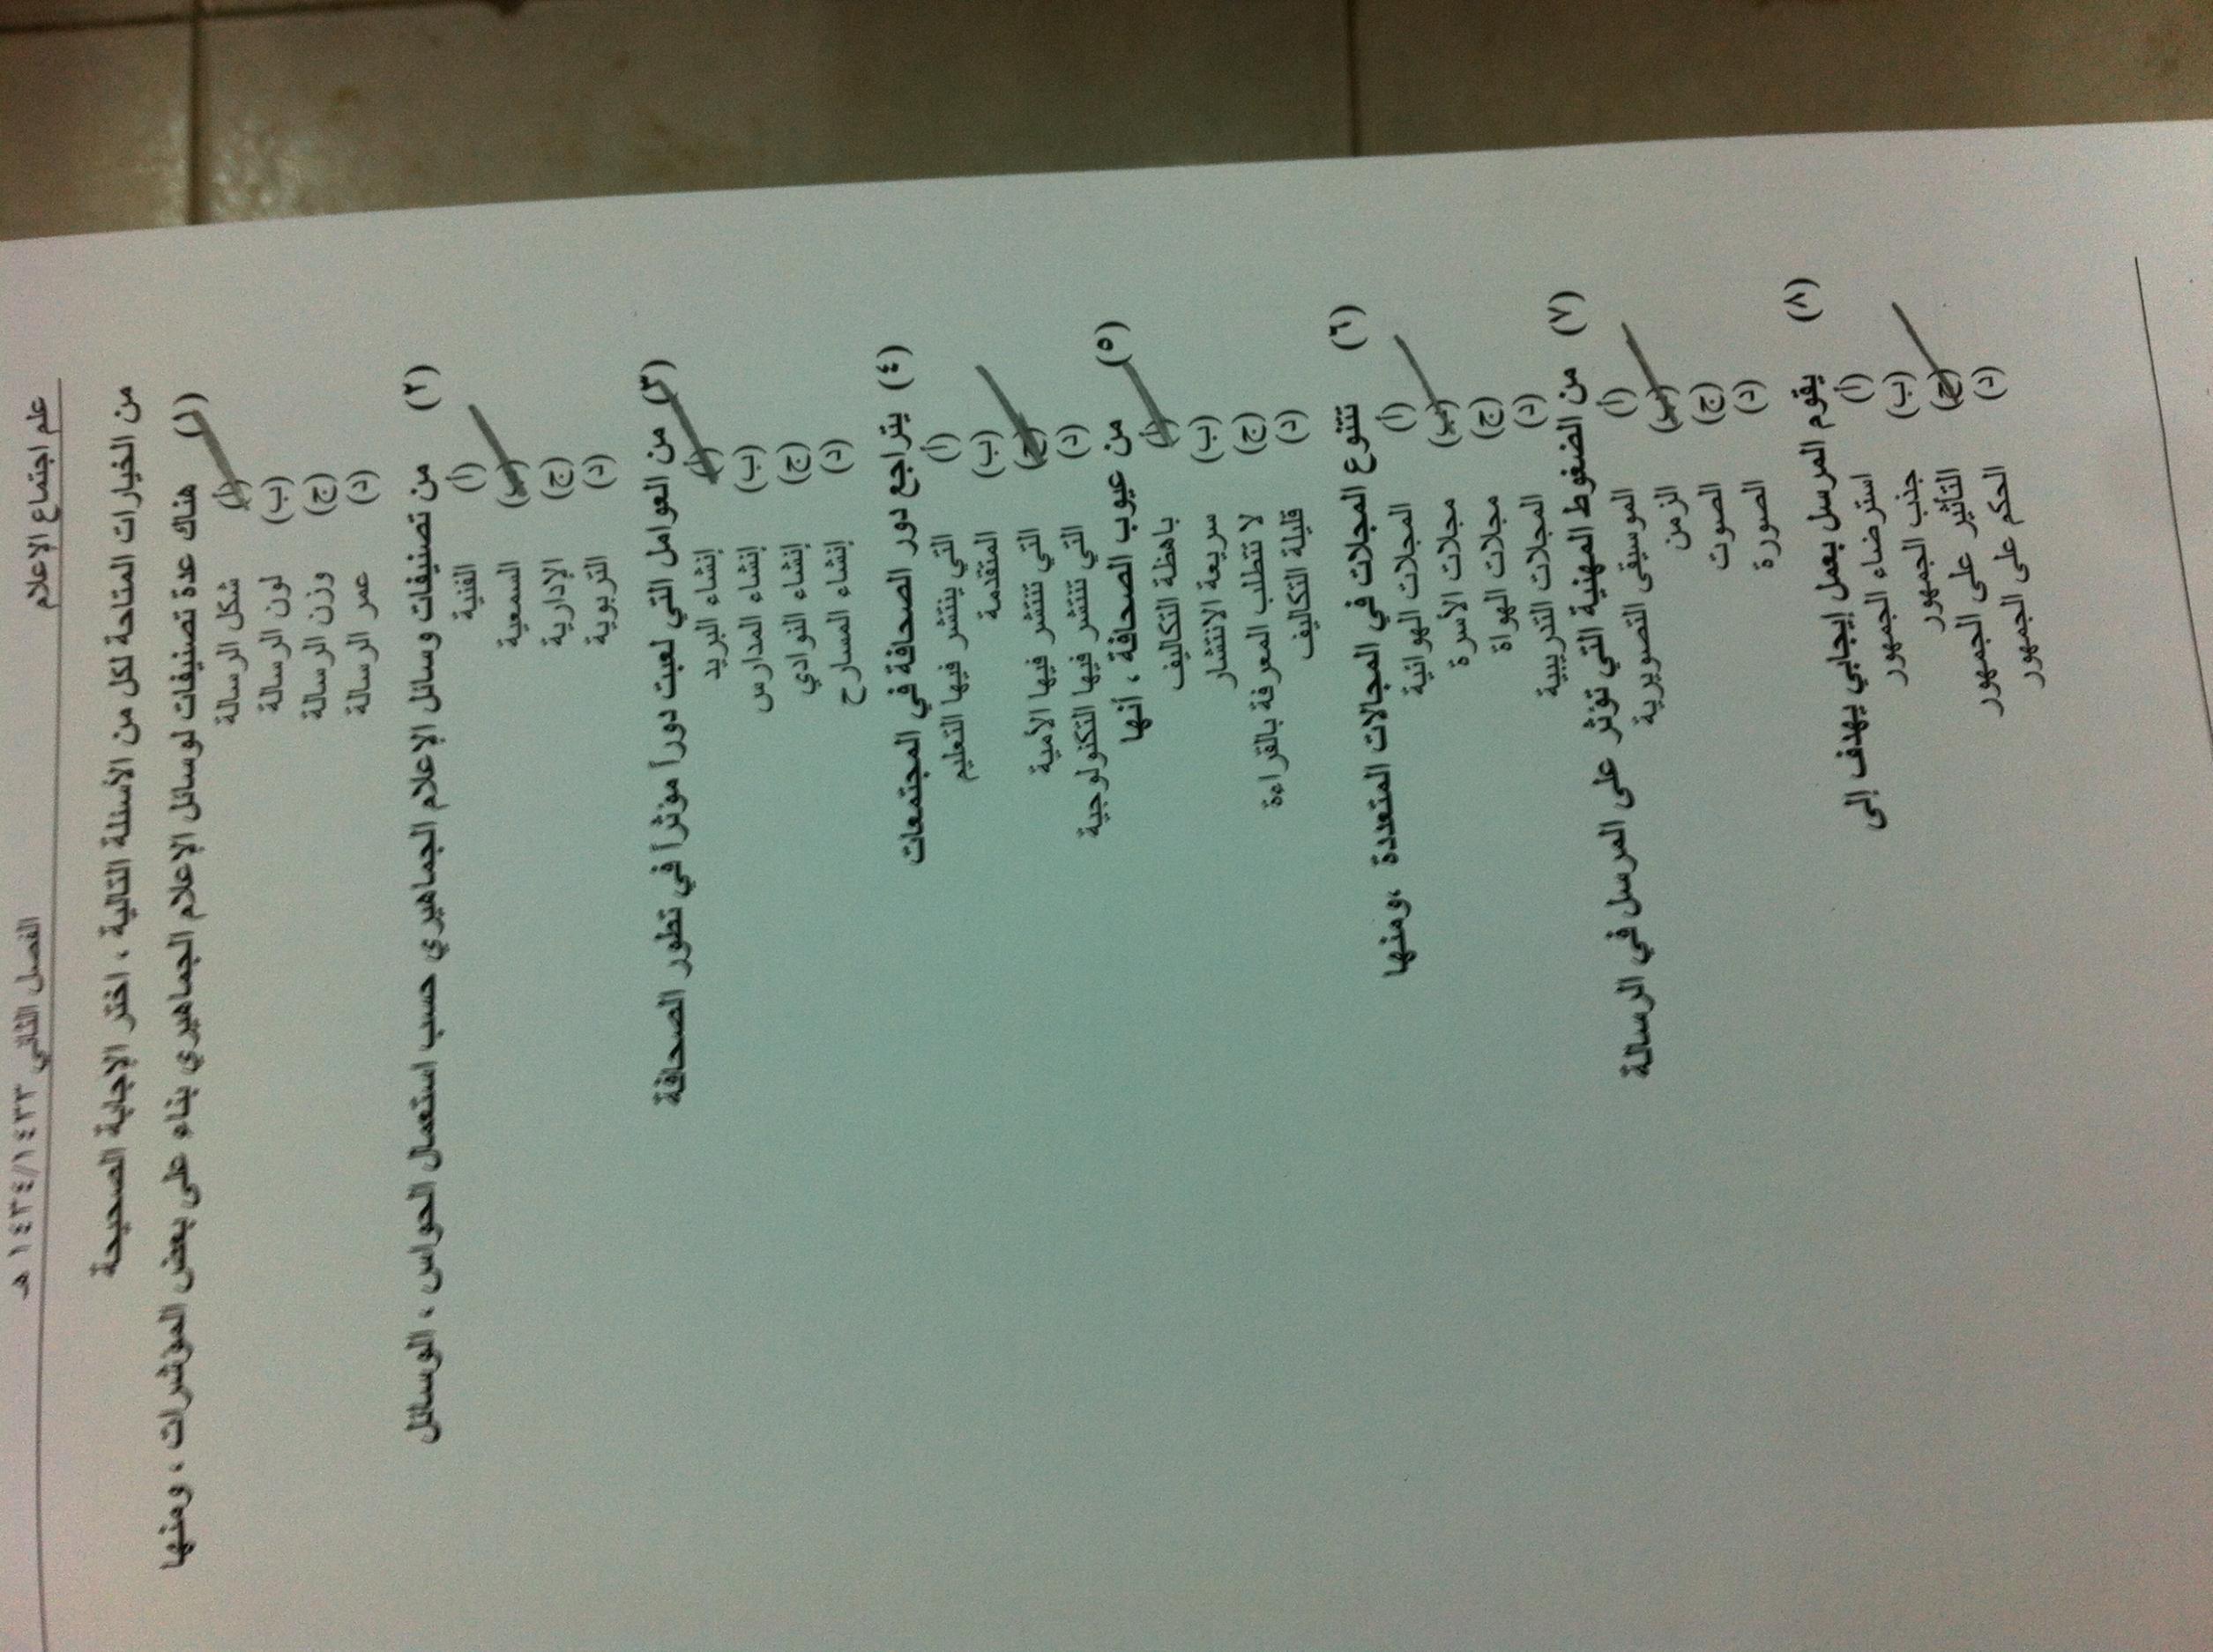 علم اجتماع الإعلام الفصل الثاني ١٤٣٤/١٤٣٣ هـ
من الخيارات المتاحة لكل من الأسئلة التالية ، اختر الإجابة الصحيحة
(١) هناك عدة تصنيفات لوسائل الإعلام الجماهيري بناء على بعض المؤشرات ، ومنها
(أ) شكل الرسالة
(ب) لون الرسالة
(ج) وزن الرسالة
(د) عمر الرسالة
(٢) من تصنيفات وسائل الإعلام الجماهيري حسب استعمال الحواس ، الوسائل
(أ) الفنية
(ب) السمعية
(ج) الإدارية
(د) التربوية
(٣) من العوامل التي لعبت دوراً مؤثراً في تطور الصحافة
(أ) إنشاء البريد
(ب) إنشاء المدارس
(ج) إنشاء النوادي
(د) إنشاء المسارح
(٤) يتراجع دور الصحافة في المجتمعات
(أ) التي ينتشر فيها التعليم
(ب) المتقدمة
(ج) التي تنتشر فيها الأمية
(د) التي تنتشر فيها التكنولوجية
(٥) من عيوب الصحافة ، أنها
(أ) باهظة التكاليف
(ب) سريعة الانتشار
(ج) لا تتطلب المعرفة بالقراءة
(د) قليلة التكاليف
(٦) تتنوع المجلات في المجالات المتعددة ،ومنها
(أ) المجلات الهوائية
(ب) مجلات الأسرة
(ج) مجلات الهواة
(د) المجلات التدريبية
(٧) من الضغوط المهنية التي تؤثر على المرسل في الرسالة
(أ) الموسيقى التصويرية
(ب) الزمن
(ج) الصوت
(د) الصورة
(٨) يقوم المرسل بعمل إيجابي يهدف إلى
(أ) استرضاء الجمهور
(ب) جذب الجمهور
(ج) التأثير على الجمهور
(د) الحكم على الجمهور